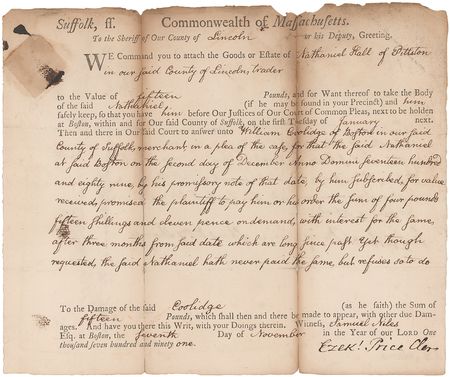 Suffolk, ss. Commonwealth of Massachusetts.
To the Sheriff of Our County of Lincoln or his Deputy, Greeting.
WE Command you to attach the Goods or Estate of Nathaniel Hall of Pittston
in our said County of Lincoln, trader
to the Value of fifteen Pounds, and for Want thereof to take the Body
of the said Nathaniel (if he may be found in your Precinct) and him
safely keep, so that you have him before Our Justices of Our Court of Common Pleas, next to be holden
at Boston, within and for Our said County of Suffolk, on the first Tuesday of January next.
Then and there in Our said Court to answer unto William Coolidge of Boston in our said
County of Suffolk, merchant in a plea of the case, for that the said Nathaniel
at said Boston on the second day of December Anno Domini, seventeen hundred
and eighty nine, by his promissory note of that date, by him subscribed, for value
received, promised the plaintiff to pay him or his order the sum of four pounds
fifteen shillings and eleven pence on demand, with interest for the same,
after three months from said date which are long since past Yet though
requested, the said Nathaniel hath never paid the same, but refuses so to do
To the Damage of the said Coolidge (as he saith) the Sum of
fifteen Pounds, which shall then and there be made to appear, with other due Dam-
ages. And have you there this Writ, with your Doings therein. Witness, Samuel Niles
Esq. at Boston, the seventh Day of November in the Year of our LORD One
thousand seven hundred and ninety one.
Ezek! Price Cler